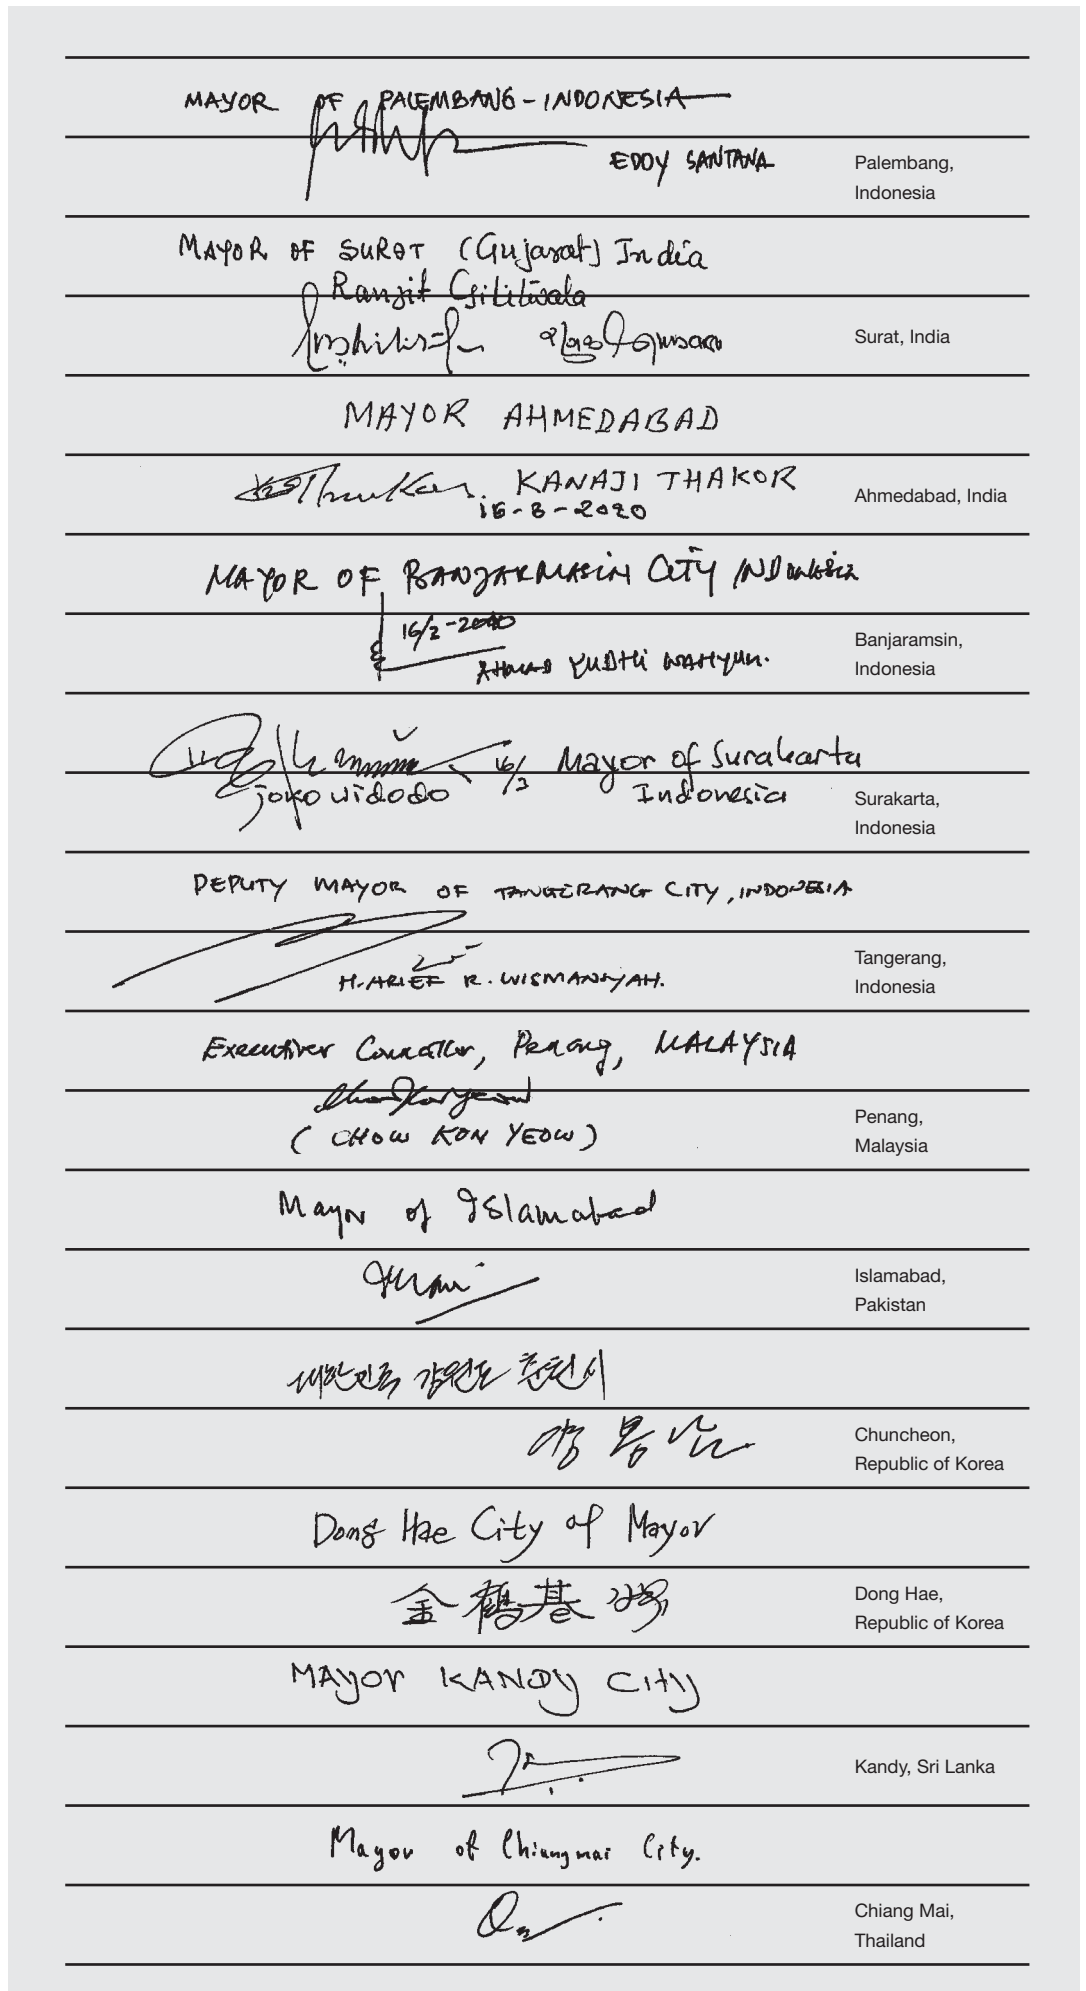 MAYOR OF PALEMBANG - INDONESIA
EDDY SANTANA
Palembang,
Indonesia
MAYOR OF SURAT (Gujarat) India
Ranjit Gilitwala
Surat, India
MAYOR AHMEDABAD
KANAJI THAKOR
Ahmedabad, India
MAYOR OF BANJARMASIN CITY INDONESIA
AHMAD YUDHI WAHYUNI.
Banjaramsin,
Indonesia
16/3 Mayor of Surakarta
joko widodo Indonesia
Surakarta,
Indonesia
DEPUTY MAYOR OF TANGERANG CITY, INDONESIA
H. ARIEF R. WISMANSYAH.
Tangerang,
Indonesia
Executive Councillor, Penang, MALAYSIA
(CHOW KON YEOW)
Penang,
Malaysia
Mayor of Islamabad
Islamabad,
Pakistan
대한민국 강원도 춘천시
Chuncheon,
Republic of Korea
Dong Hae City of Mayor
金鶴基
Dong Hae,
Republic of Korea
MAYOR KANDY CITY
Kandy, Sri Lanka
Mayor of Chiangmai City.
Chiang Mai,
Thailand